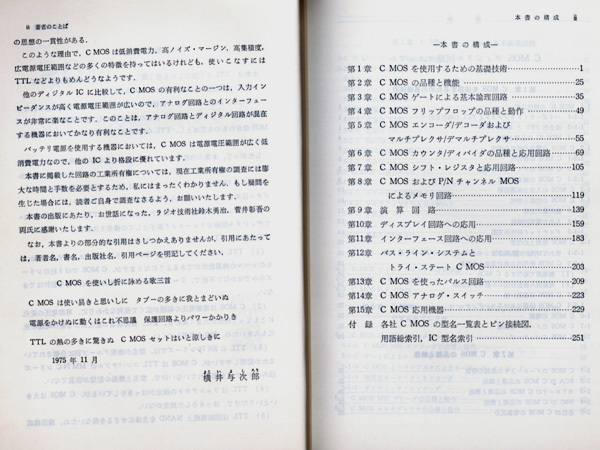 著者のことば
の思想の一貫性がある.
このような理由で, C MOS は低消費電力, 高ノイズ・マージン, 高集積度,
広電源電圧範囲などの多くの特徴を持ってはいるけれども, 使いこなすには
TTL などよりもめんどうなようです.
他のディジタル IC に比較して, C MOS の有利なことの一つは, 入力イン
ピーダンスが高く電源電圧範囲が広いので, アナログ回路とのインターフェー
スが非常に楽なことです. このことは, アナログ回路とディジタル回路が混在
する機器においてかなり有利なことです.
バッテリ電源を使用する機器においては, C MOS は電源電圧範囲が広く低
消費電力なので, 他の IC より格段に優れています.
本書に掲載した回路の工業所有権については, 現在工業所有権の調査には膨
大な時間と手数を必要とするため, 私にはまったくわかりません. もし疑問を
生じた場合には, 読者ご自身で調査なさるよう, お願いいたします.
本書の出版にあたり, お世話になった, ラジオ技術社鈴木勇治, 菅井彰吾の
両氏に感謝いたします.
なお, 本書よりの部分的な引用はさしつかえありませんが, 引用にあたって
は, 著者名, 書名, 出版社名, 引用ページを明記してください.
C MOS を使いし折に詠める歌三首
C MOS は使い易きと思いしに タブーの多きに我とまどいぬ
電源をかけぬに動くはこれ不思議 保護回路よりパワーかかりき
TTL の熱の多きに驚きぬ C MOS セットはいと涼しきに
1975 年 11 月
横井与次郎
本書の構成
―本書の構成―
第1章 C MOS を使用するための基礎技術 1
第2章 C MOS の品種と機能 25
第3章 C MOS ゲートによる基本論理回路 35
第4章 C MOS フリップフロップの品種と動作 49
第5章 C MOS エンコーダ/デコーダおよび
マルチプレクサ/デマルチプレクサ 55
第6章 C MOS カウンタ/ディバイダの品種と応用回路 69
第7章 C MOS シフト・レジスタと応用回路 105
第8章 C MOS および P/N チャンネル MOS
によるメモリ回路 119
第9章 演算回路 139
第10章 ディスプレイ回路への応用 159
第11章 インターフェース回路への応用 183
第12章 バス・ライン・システムと
トライ・ステート C MOS 203
第13章 C MOS を使ったパルス回路 209
第14章 C MOS アナログ・スイッチ 223
第15章 C MOS 応用機器 229
付録 各社 C MOS の型名一覧表とピン接続図,
用語総索引, IC 型名索引 251